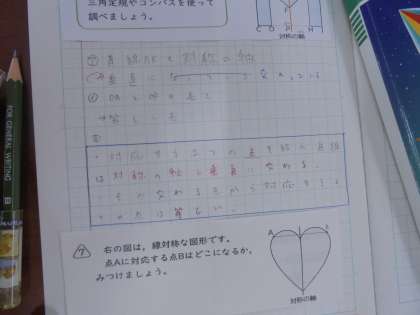 三角定規やコンパスを使って
調べましょう。
C D M H
対称の軸
⑦ 直線
と対称の軸
垂直に
交わっている
等しい
・対応する2つの点を結ぶ直線
は対称の軸と垂直に交わる。
その交わる点から対応する
等しい。
7 右の図は，線対称な図形です。
点Aに対応する点Bはどこになるか，
みつけましょう。
A
対称の軸
FOR GENERAL WRITING
B